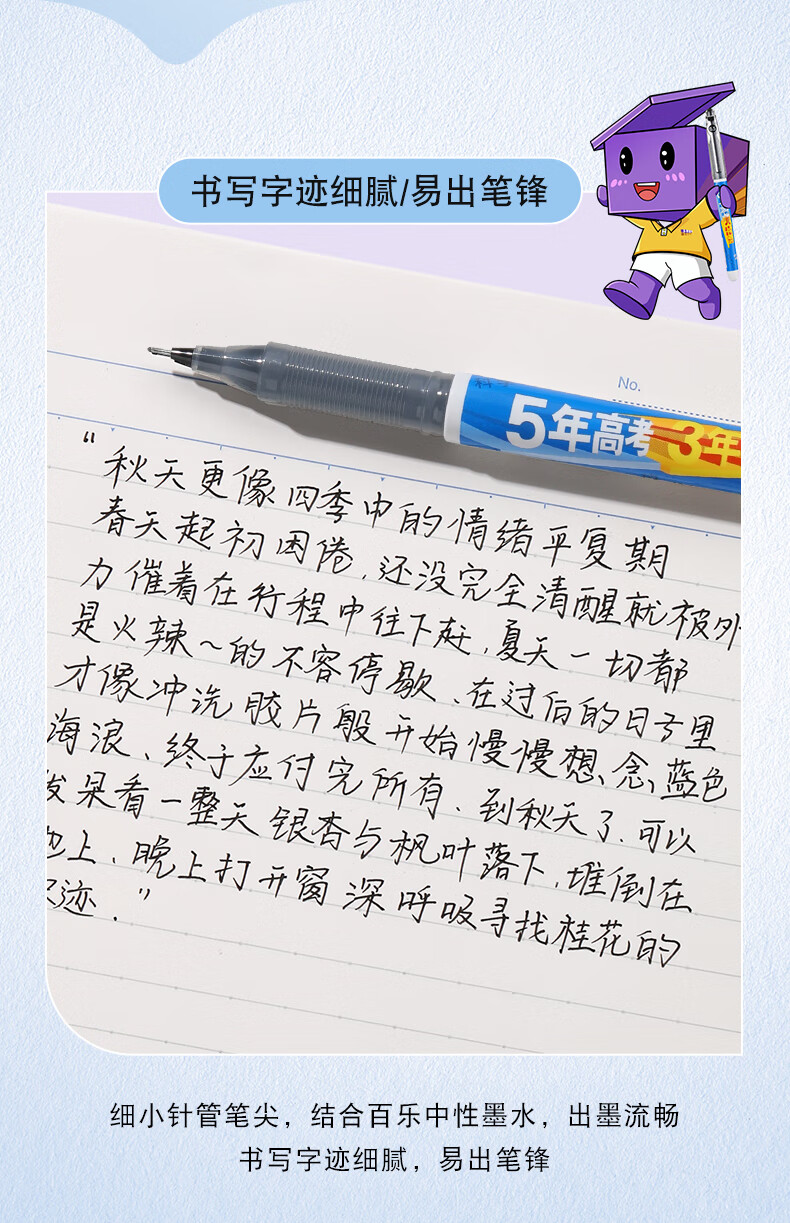 书写字迹细腻/易出笔锋
No.
5年高考 3年
“秋天更像四季中的情绪平复期
春天起初困倦,还没完全清醒就被外
力催着在行程中往下赶,夏天一切都
是火辣~的不容停歇、在过后的日子里
才像冲洗胶片般开始慢慢想、念、蓝色
海浪、终于应付完所有、到秋天了、可以
发呆看一整天银杏与枫叶落下,堆倒在
地上、晚上打开窗深呼吸寻找桂花的
迹.”
细小针管笔尖，结合百乐中性墨水，出墨流畅
书写字迹细腻，易出笔锋